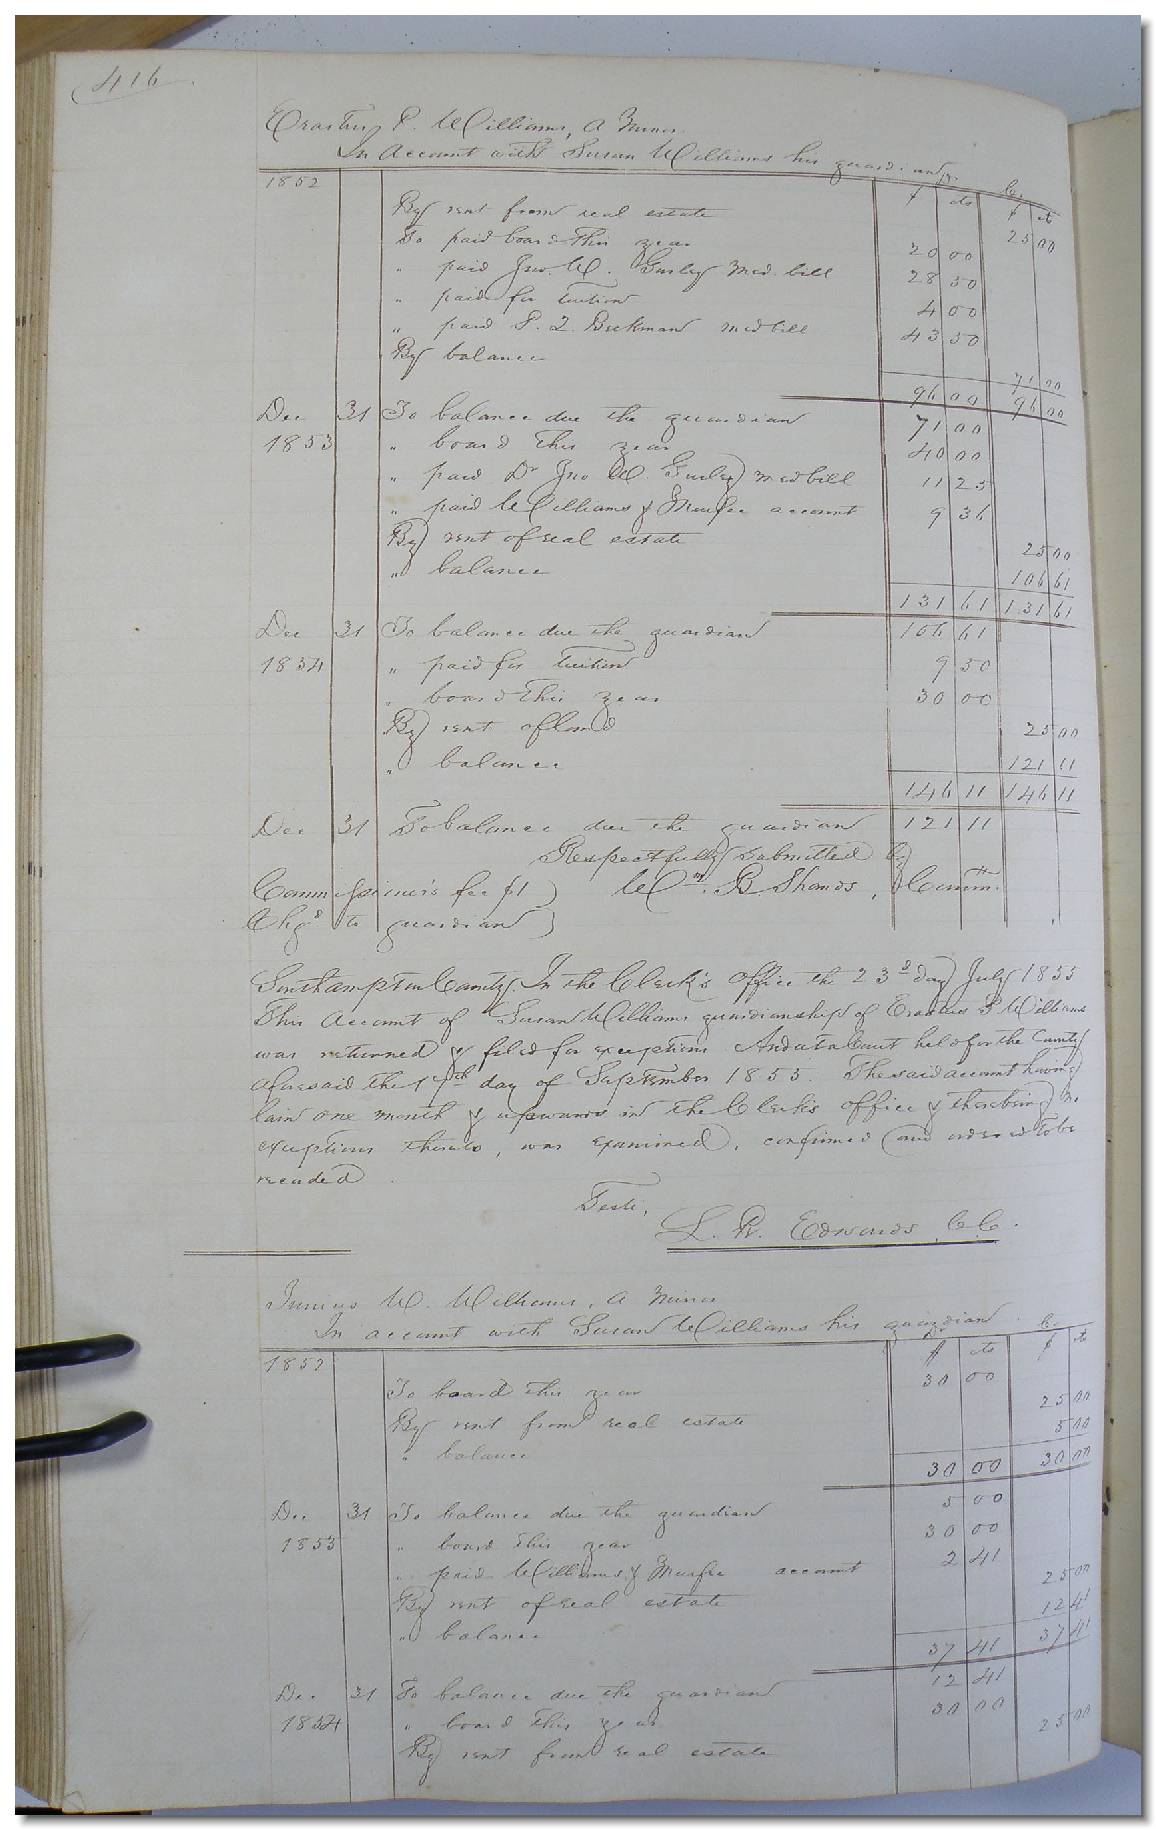 416
Erastus P. Williams, A Minor
In Account with Susan Williams his guardian Dr. Cr.
1852 $ cts $ cts
By rent from real estate 25 00
To paid board this year 20 00
" paid Jno. W. Gurley Med. bill 28 50
" paid for tuition 4 00
" paid P. Z. Buckman med bill 43 50
By balance 71 00
96 00 96 00
Dec 31 To balance due the guardian 71 00
1853 " board this year 40 00
" paid Dr Jno W. Gurley med bill 11 25
" paid Williams & Murfee account 9 36
By rent of real estate 25 00
" balance 106 61
131 61 131 61
Dec 31 To balance due the guardian 106 61
1854 " paid for tuition 9 50
" board this year 30 00
By rent of land 25 00
" balance 121 11
146 11 146 11
Dec 31 To balance due the guardian 121 11
Respectfully Submitted by
Commissioner's fee $1 Wm. B. Shands, Comm.
Chgd to guardian
Southampton County, In the Clerk's Office the 23d day July 1855
This Account of Susan Williams guardianship of Erastus P Williams
was returned & filed for exceptions And at a Court held for the County
aforesaid the 17th day of September 1855. The said account having
lain one month & upwards in the Clerk's office & there being no
exceptions thereto, was examined, confirmed and ordered to be
recorded
Teste,
L. R. Edwards, C.C.
Junius W. Williams, A Minor
In account with Susan Williams his guardian Cr.
1852 $ cts $ cts
To board this year 30 00
By rent from real estate 25 00
" balance 5 00
30 00 30 00
Dec 31 To balance due the guardian 5 00
1853 " board this year 30 00
" paid Williams & Murfee account 2 41
By rent of real estate 25 00
" balance 12 41
37 41 37 41
Dec 31 To balance due the guardian 12 41
1854 " board this year 30 00
By rent from real estate 25 00